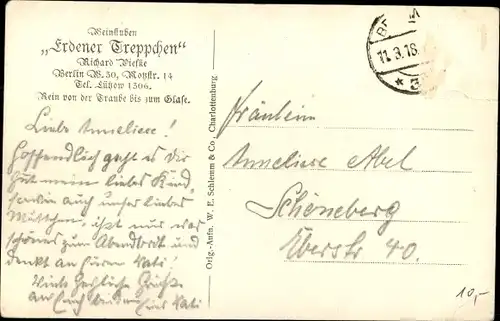 Weinstuben
„Erdener Treppchen“
Richard Pieske
Berlin W. 30, Motzstr. 14
Tel. Lützow 1306.
Rein von der Traube bis zum Glase.
Liebe Anneliese!
Hoffendlich geht es dir
gut mein liebes Kind,
sowie auch unser liebes
Muttchen, ißt nur was
schönes zum Abendbrodt und
denkt an Euren Vati!
Viele herzliche Grüße
an Euch beiden Euer Vati
Orig.-Aufn. W. E. Schlemm & Co. Charlottenburg
11.3.18.
Fräulein
Anneliese Abel
Schöneberg
Eberstr 40.
10,-